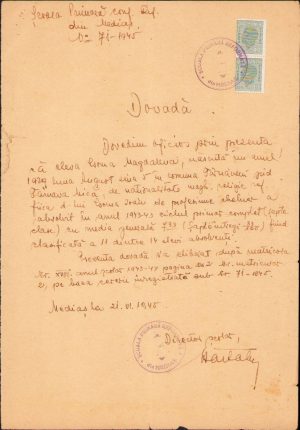 Școala Primară conf. Ref.
din Mediaș
No 71-1945
Dovadă
Dovedim oficios prin prezenta
că eleva Csoma Magdalena, născută în anul
1929 luna August ziua 5 în comuna Târnăveni jud
Târnava Mică, de naționalitate magh. religie ref
fiica d-lui Csoma de profesiune
a absolvit în anul 1942-43 ciclul primar complet (șapte
clase) cu media generală 7.33 (șapte întregi 33%) fiind
clasificată a 11 dintre 14 elevi absolvenți.
Prezenta dovadă s'a eliberat după matricola
Nr. anul școlar 1942-43 pagina Nr. matricolar
2, pe baza cererii înregistrată sub Nr. 71-1945.
Mediaș, la 21. VI. 1945
Director școlar,
ȘCOALA PRIMARĂ REFORMATĂ